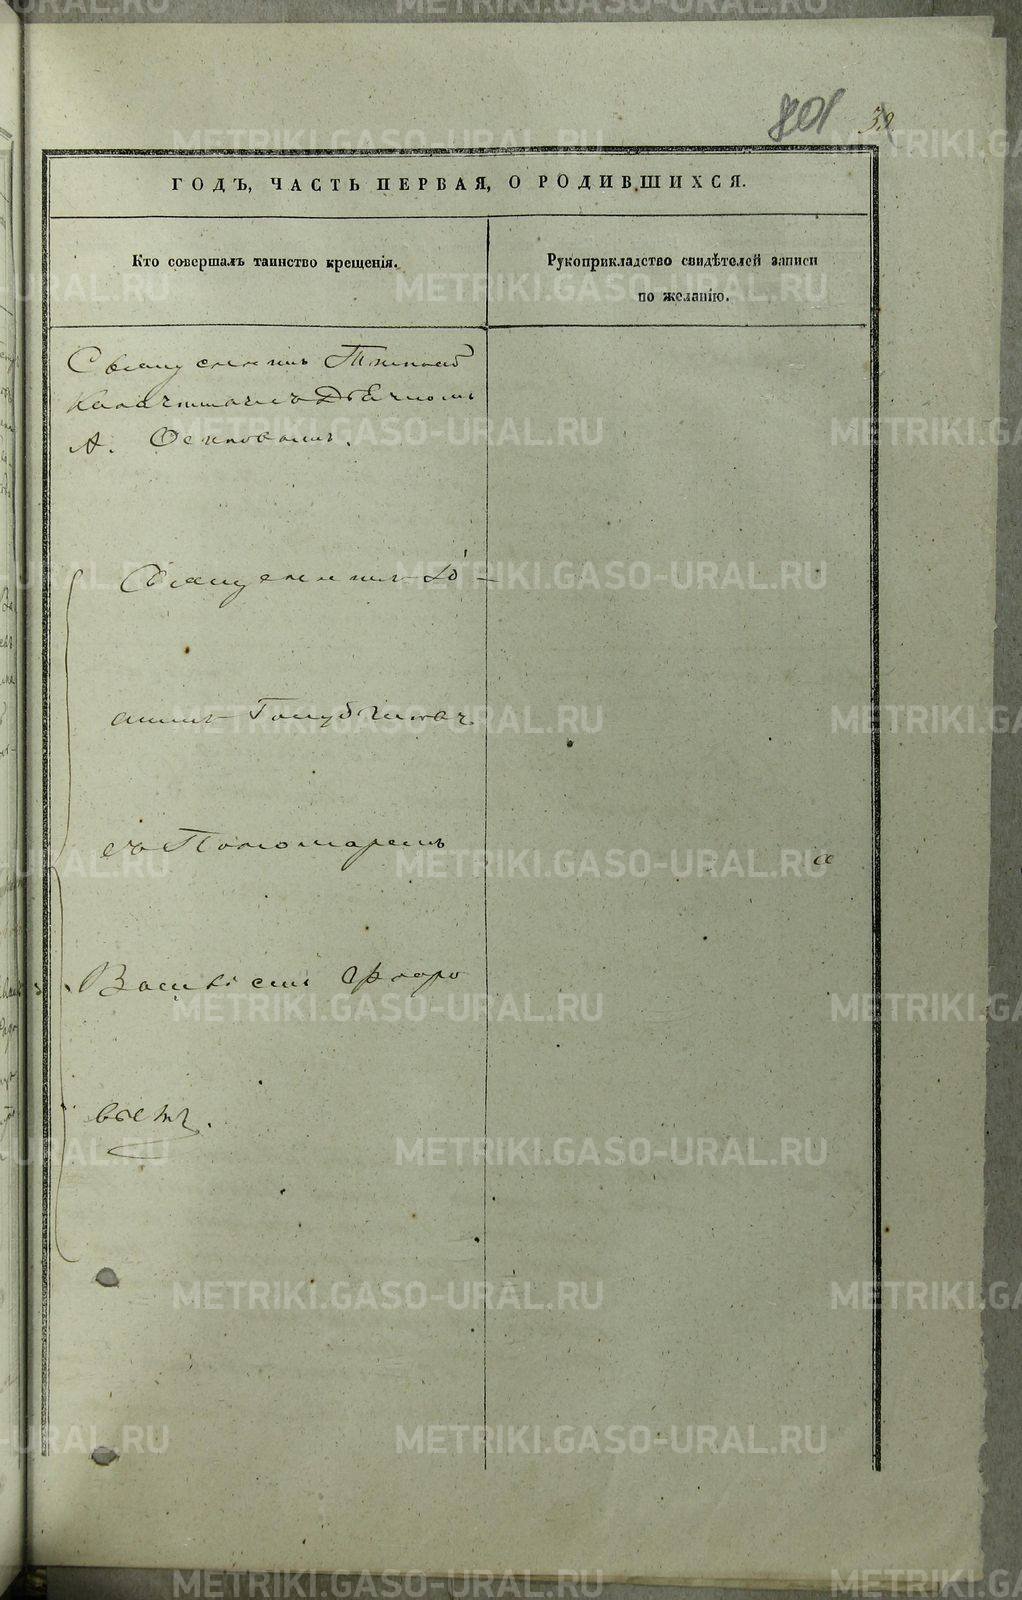 801 32
ГОДЪ, ЧАСТЬ ПЕРВАЯ, О РОДИВШИХСЯ.
Кто совершалъ таинство крещенія.
Рукоприкладство свидѣтелей записи
по желанію.
Священникъ
А. Осиповымъ.
Священникъ Іо-
аннъ Голубчиковъ
съ Пономаремъ
Василіемъ Флоро
вымъ.
METRIKI.GASO-URAL.RU